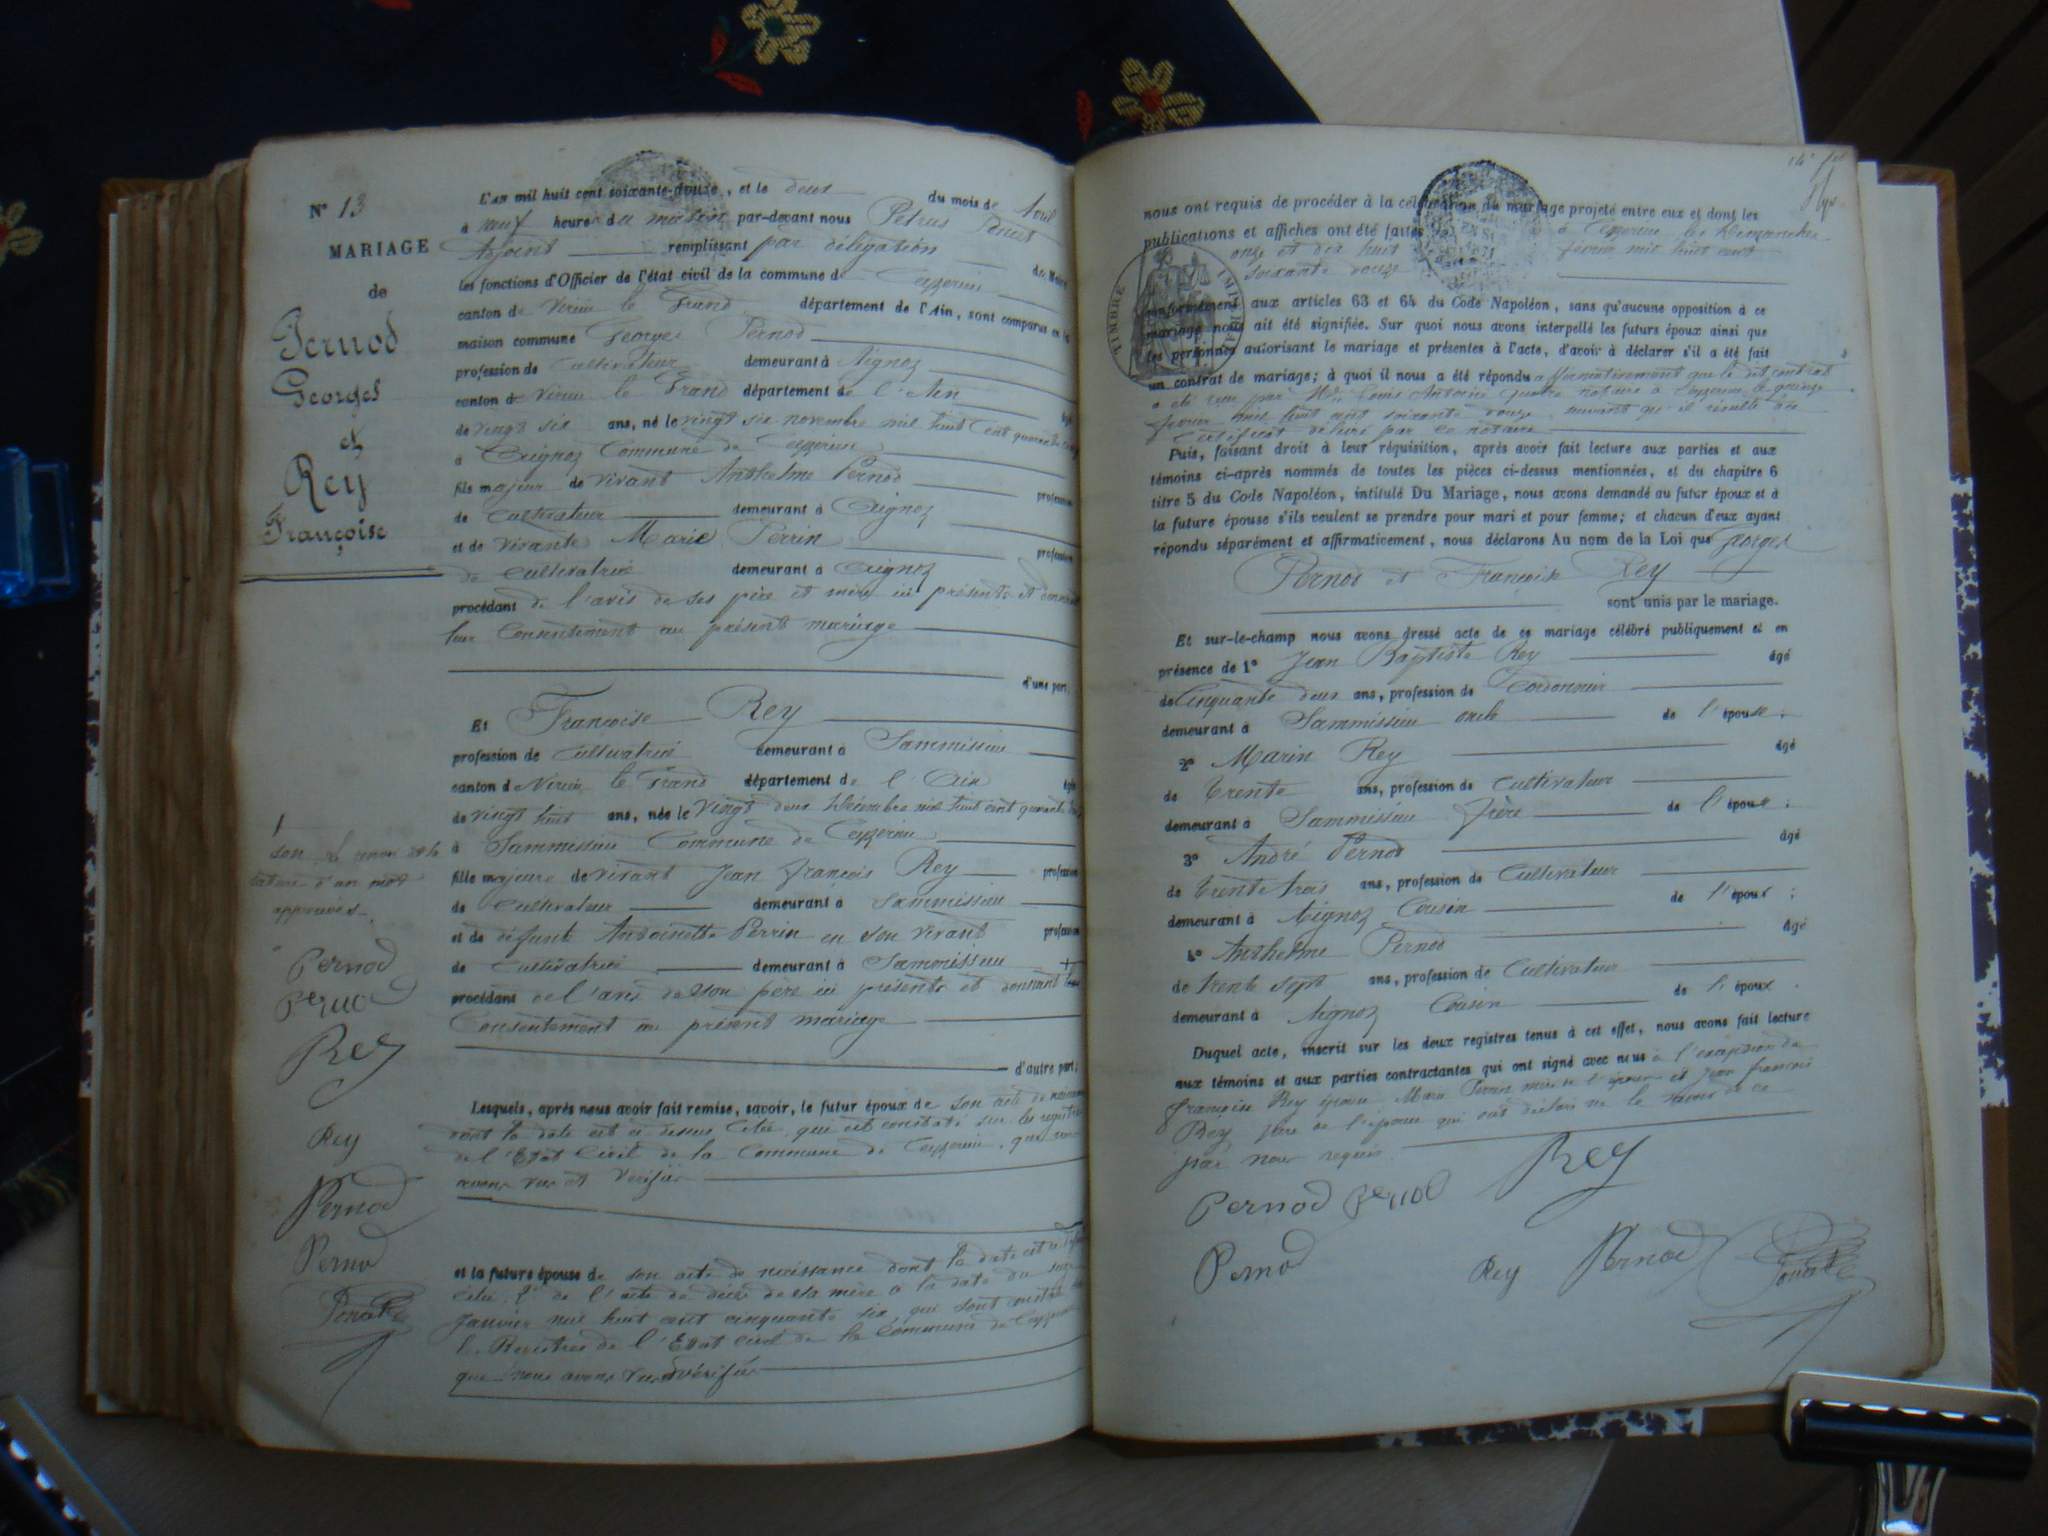 N° 13
MARIAGE
de
Pernod
Georges
et
Rey
Françoise
L'AN mil huit cent soixante-douze, et le deux du mois de Avril
à neuf heures du matin par-devant nous Pétrus
Adjoint remplissant par délégation du Maire
les fonctions d'Officier de l'état civil de la commune de Ceyzerieu
canton de Virieu le Grand département de l'Ain, sont comparus en la
maison commune Georges Pernod
profession de Cultivateur demeurant à Aignoz
canton de Virieu le Grand département de l'Ain âgé
de vingt six ans, né le vingt six novembre mil huit cent quarante cinq
à Aignoz Commune de Ceyzerieu
fils majeur de vivant Anthelme Pernod profession
de Cultivateur demeurant à Aignoz
et de vivante Marie Perrin profession
de Cultivatrice demeurant à Aignoz
procédant de l'avis de ses père et mère ici présents et donnant
leur Consentement au présent mariage
d'une part;
Et Françoise Rey
profession de Cultivatrice demeurant à Sammissieu
canton de Virieu le Grand département de l'Ain âgée
de vingt huit ans, née le vingt deux Décembre mil huit cent quarante
à Sammissieu Commune de Ceyzerieu
fille majeure de vivant Jean François Rey profession
de Cultivateur demeurant à Sammissieu
et de défunte Antoinette Perrin en son vivant profession
de Cultivatrice demeurant à Sammissieu +
procédant de l'avis de son père ici présent et donnant
Consentement au présent mariage
d'autre part;
Lesquels, après nous avoir fait remise, savoir, le futur époux de son acte de naissance
dont la date est ci dessus citée, que est constaté sur les registres
de l'Etat Civil de la Commune de Ceyzerieu, que nous
avons vus et vérifiés
et la future épouse de son acte de naissance dont la date est ci dessus
citée, 2° de l'acte de décès de sa mère à la date du
Janvier mil huit cent cinquante six, qui sont constatés
le Registres de l'Etat civil de la Commune de Ceyzerieu
que nous avons vus et vérifiés
le renvoi et la
rature d'un mot
approuvés
Pernod
Pernod
Rey
Rey
Pernod
Pernod
nous ont requis de procéder à la célébration du mariage projeté entre eux et dont les
publications et affiches ont été faites à Ceyzerieu les Dimanches
onze et dix huit février mil huit cent
soixante douze
TIMBRE IMPÉRIAL
conformément aux articles 63 et 64 du Code Napoléon, sans qu'aucune opposition à ce
mariage nous ait été signifiée. Sur quoi nous avons interpellé les futurs époux ainsi que
les personnes autorisant le mariage et présentes à l'acte, d'avoir à déclarer s'il a été fait
un contrat de mariage; à quoi il nous a été répondu affirmativement que le dit contrat
a été reçu par Me Louis Antoine notaire à Ceyzerieu le quinze
février mil huit cent soixante douze suivant qu'il résulte du
Certificat délivré par ce notaire
Puis, faisant droit à leur réquisition, après avoir fait lecture aux parties et aux
témoins ci-après nommés de toutes les pièces ci-dessus mentionnées, et du chapitre 6
titre 5 du Code Napoléon, intitulé Du Mariage, nous avons demandé au futur époux et à
la future épouse s'ils veulent se prendre pour mari et pour femme; et chacun d'eux ayant
répondu séparément et affirmativement, nous déclarons Au nom de la Loi que Georges
Pernod et Françoise Rey
sont unis par le mariage.
Et sur-le-champ nous avons dressé acte de ce mariage célébré publiquement et en
présence de 1° Jean Baptiste Rey âgé
de Cinquante deux ans, profession de Cordonnier
demeurant à Sammissieu oncle de l'épouse;
2° Marin Rey âgé
de trente ans, profession de Cultivateur
demeurant à Sammissieu frère de l'épouse;
3° André Pernod âgé
de trente trois ans, profession de Cultivateur
demeurant à Aignoz Cousin de l'époux;
4° Anthelme Pernod âgé
de trente sept ans, profession de Cultivateur
demeurant à Aignoz Cousin de l'époux.
Duquel acte, inscrit sur les deux registres tenus à cet effet, nous avons fait lecture
aux témoins et aux parties contractantes qui ont signé avec nous à l'exception de
Françoise Rey épouse Marie Perrin mère de l'époux et Jean François
Rey père de l'épouse qui ont déclaré ne le savoir de ce
par nous requis
Pernod Pernod Rey
Pernod Rey Pernod